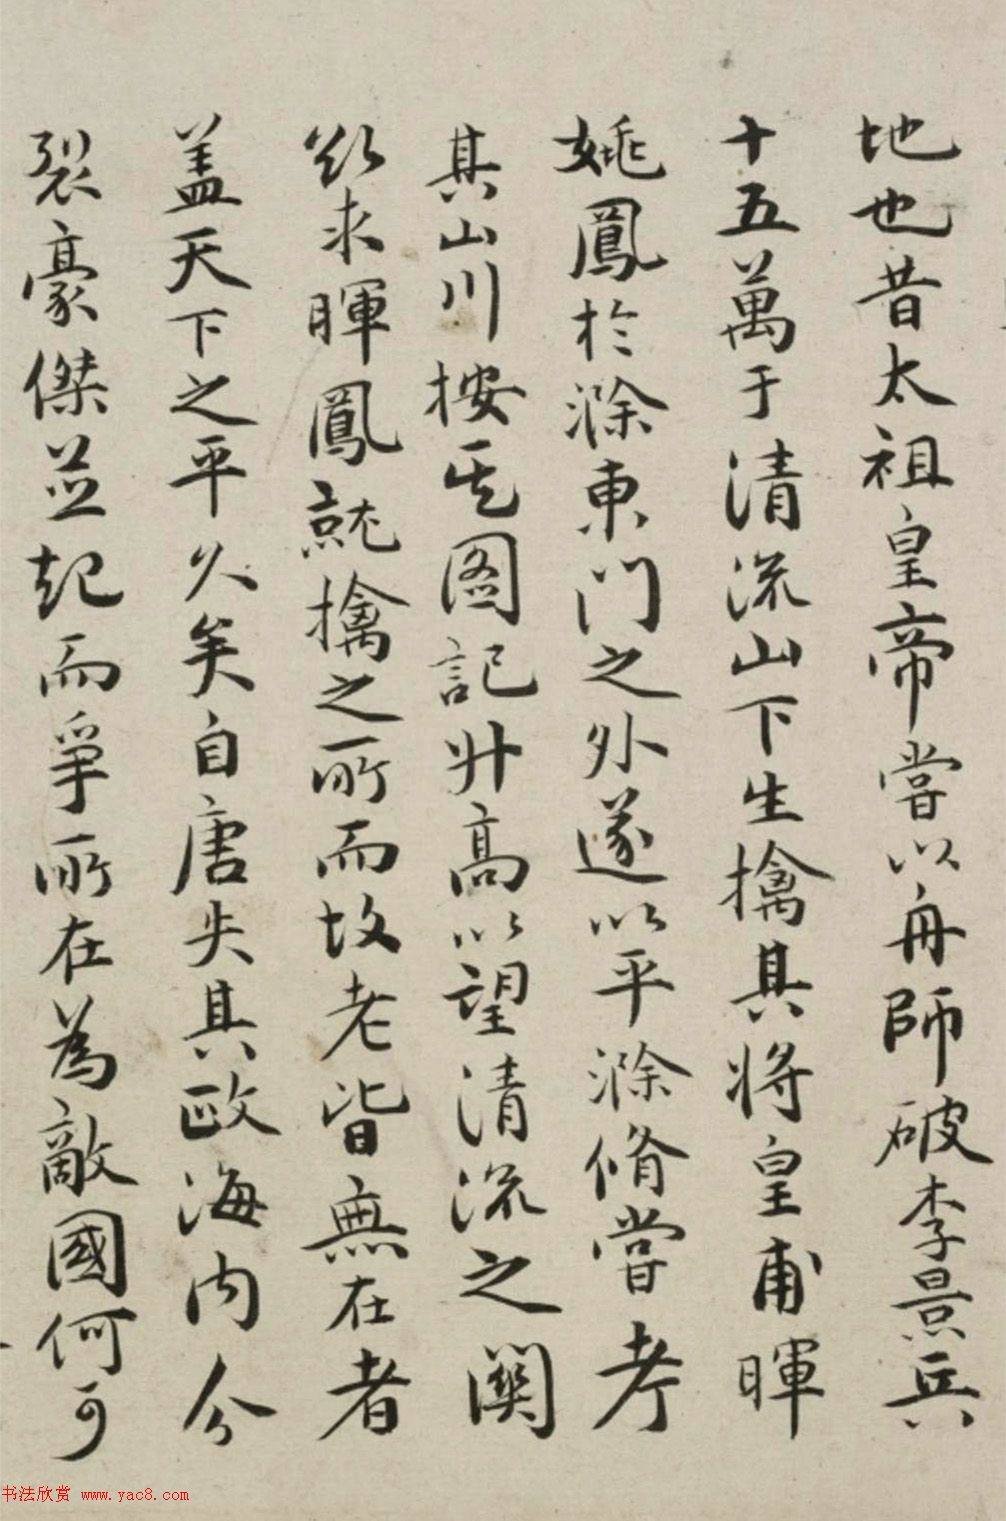 地也昔太祖皇帝嘗以舟師破李景兵
十五萬于清流山下生擒其將皇甫暉
姚鳳於滁東門之外遂以平滁脩嘗考
其山川按其圖記升高以望清流之關
欲求暉鳳就擒之所而故老皆無在者
蓋天下之平久矣自唐失其政海內分
裂豪傑並起而爭所在為敵國何可
书法欣赏 www.yac8.com